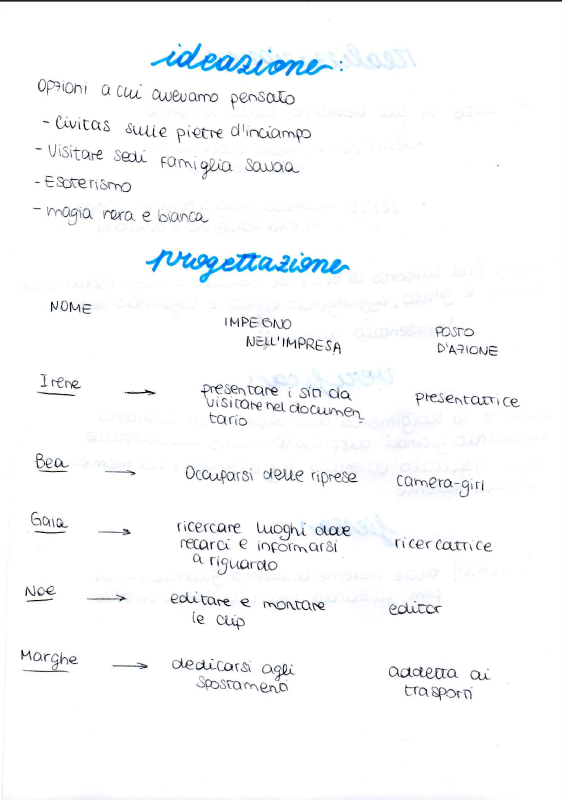 ideazione:
opzioni a cui avevamo pensato
- Civitas sulle pietre d'inciampo
- Visitare sedi famiglia savoia
- Esoterismo
- magia nera e bianca
progettazione
NOME IMPEGNO NELL'IMPRESA POSTO D'AZIONE
Irene → presentare i siti da presentatrice
visitare nel documen
tario
Bea → Occuparsi delle riprese camera-girl
Gaia → ricercare luoghi dove ricercatrice
recarci e informarsi
a riguardo
Noe → editare e montare editor
le clip
Marghe → dedicarsi agli addetta ai
spostamenti trasporti